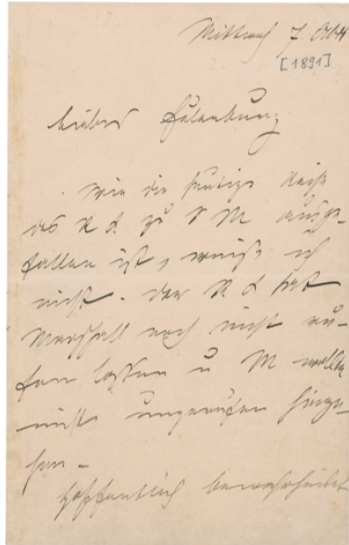 Mittwoch 7. Oktob
[1891]
Lieber Eulenburg
Wie die heutige Reise
des R K zu S M ausge-
fallen ist, weiß ich
nicht. Der R K hat
Marschall noch nicht ru-
fen lassen u M wollte
nicht ungerufen hinge-
hen.
Hoffentlich bewahrheitet